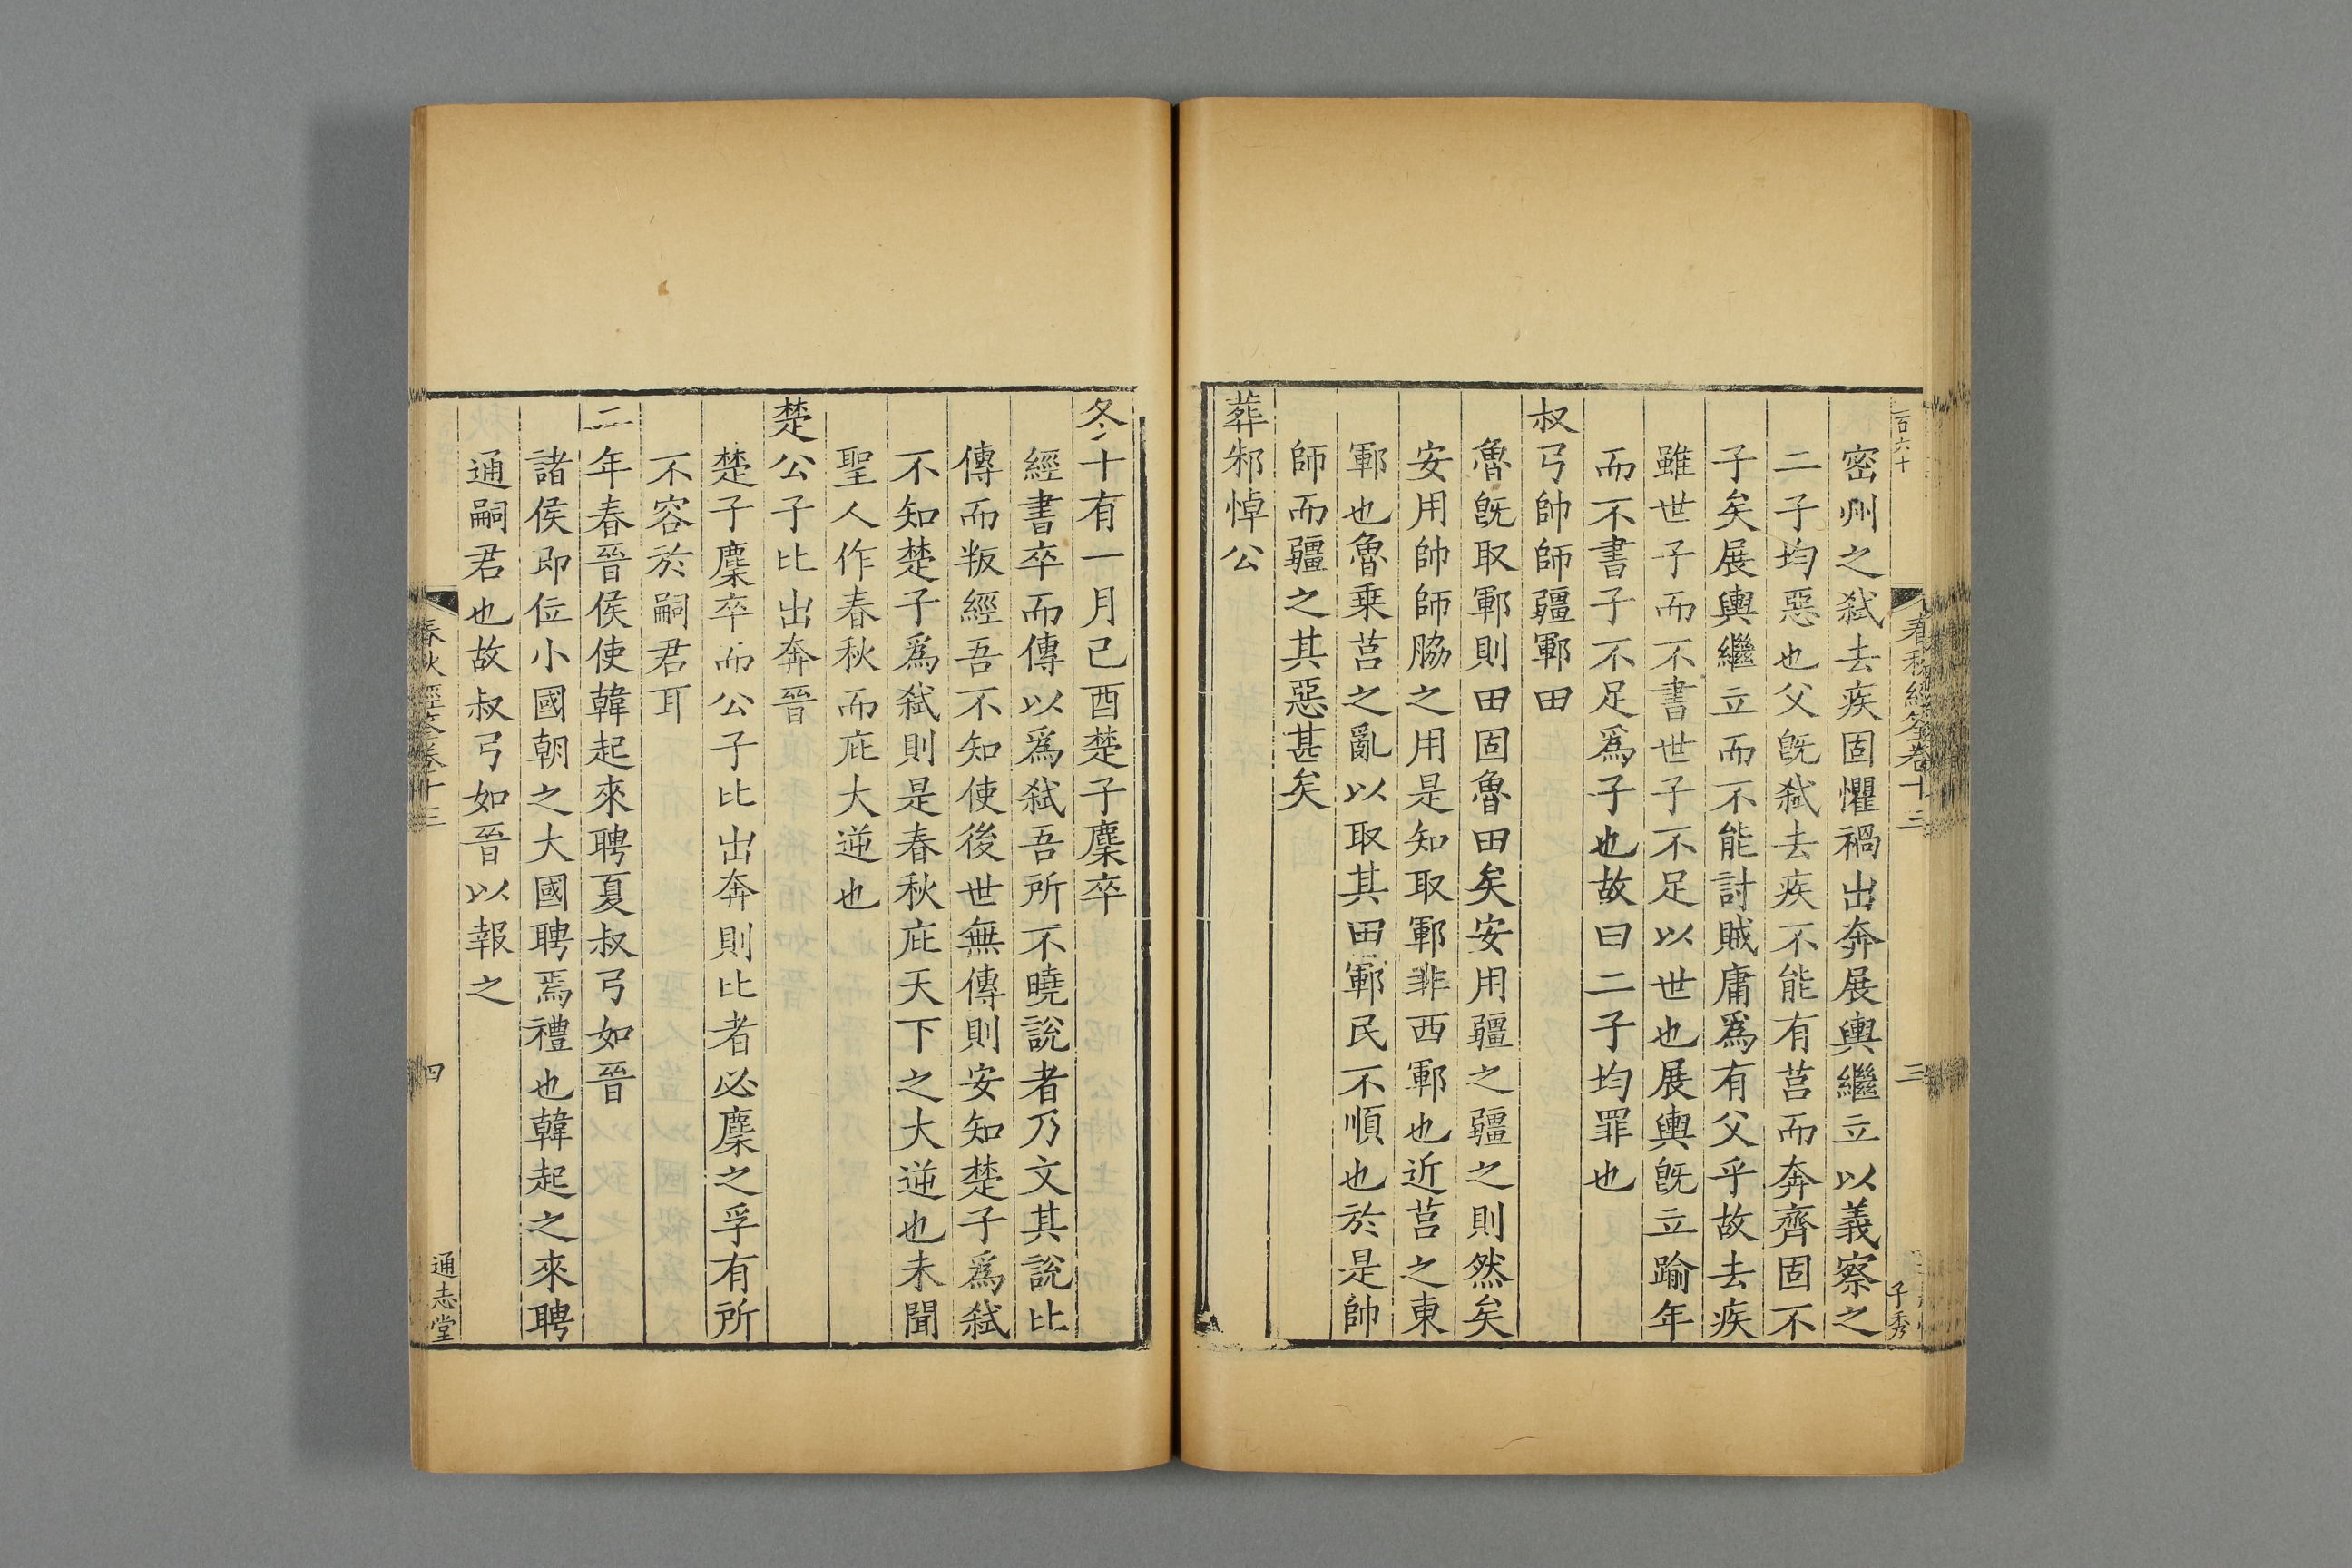 一百六十
春秋經筌卷十三
三
子秀
密州之弑去疾固懼禍出奔展輿繼立以義察之
二子均惡也父旣弑去疾不能有莒而奔齊固不
子矣展輿繼立而不能討賊庸爲有父乎故去疾
雖世子而不書世子不足以世也展輿旣立踰年
而不書子不足爲子也故曰二子均罪也
叔弓帥師疆鄆田
魯旣取鄆則田固魯田矣安用疆之疆之則然矣
安用帥師脇之用是知取鄆非西鄆也近莒之東
鄆也魯乗莒之亂以取其田鄆民不順也於是帥
師而疆之其惡甚矣
葬邾悼公
冬十有一月己酉楚子麇卒
經書卒而傳以爲弑吾所不曉說者乃文其說比
傳而叛經吾不知使後世無傳則安知楚子爲弑
不知楚子爲弑則是春秋庇天下之大逆也未聞
聖人作春秋而庇大逆也
楚公子比出奔晉
楚子麇卒而公子比出奔則比者必麇之孚有所
不容於嗣君耳
二年春晉侯使韓起來聘夏叔弓如晉
諸侯即位小國朝之大國聘焉禮也韓起之來聘
通嗣君也故叔弓如晉以報之
春秋經筌卷十三
四
通志堂